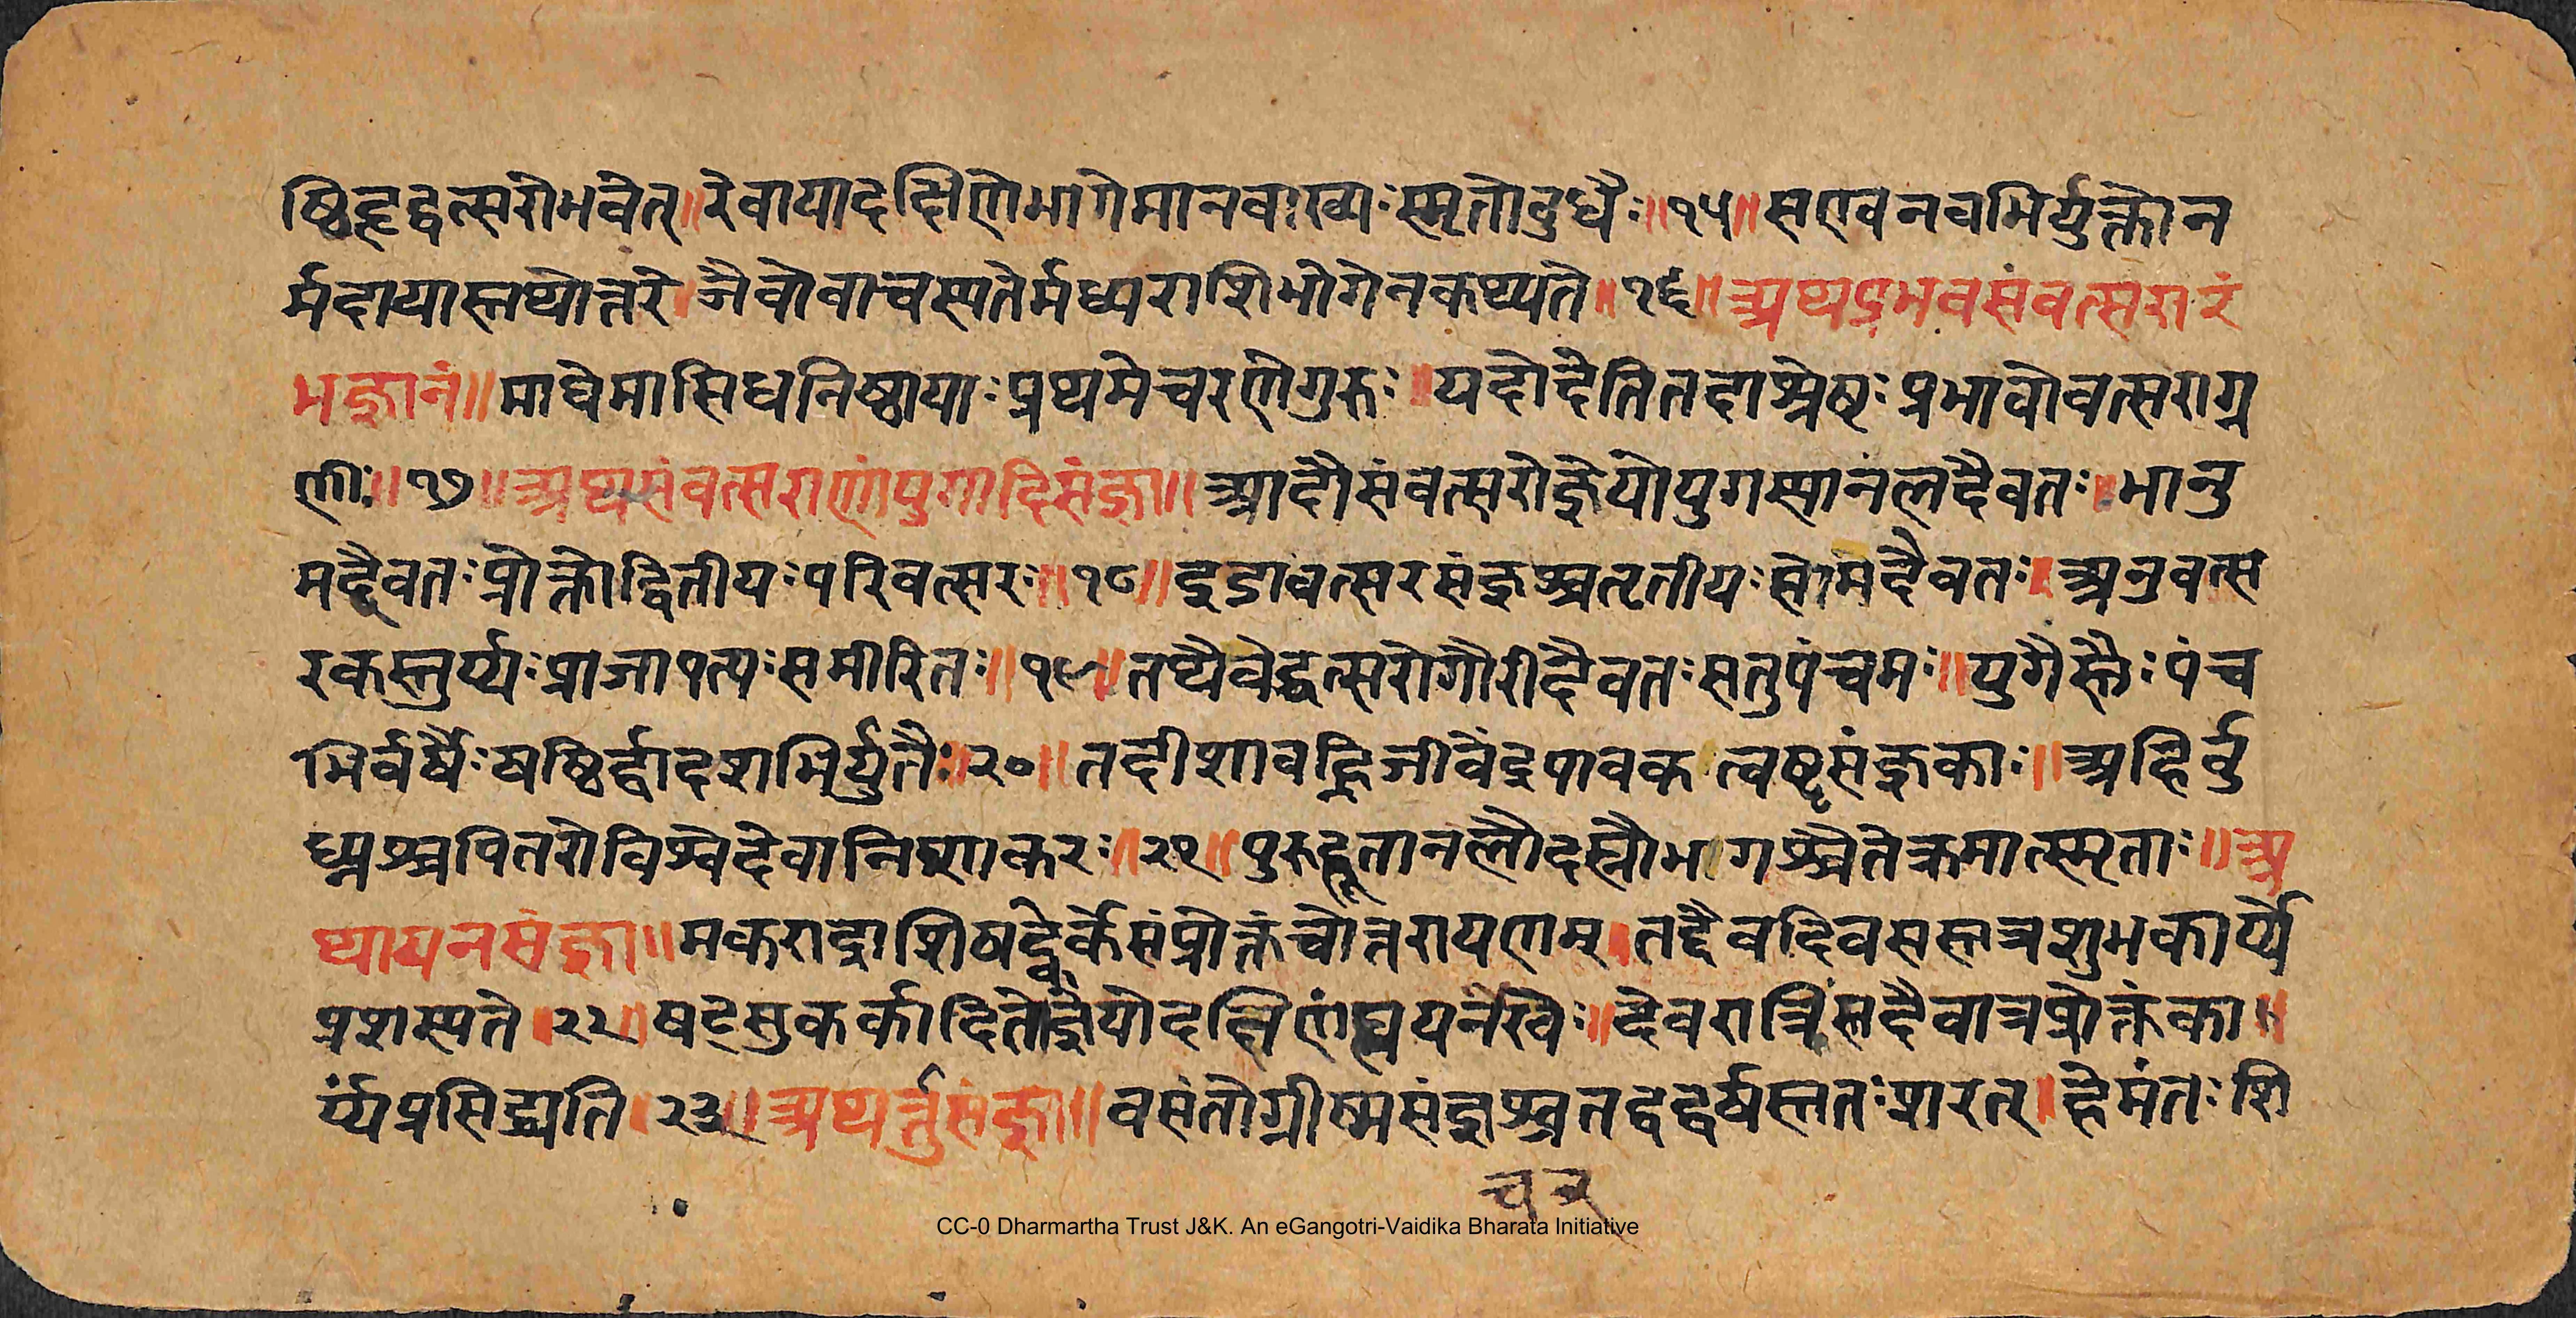 ष्ठिहृद्वत्सरोभवेत्॥रेवायादक्षिणेभागेमानवाख्यःस्मृतोबुधैः॥१५॥सएवनवभिर्युक्तोन
र्मदायास्तथोत्तरे।जैवोवाचस्पतेर्मध्यराशिभोगेनकथ्यते॥१६॥अथप्रभवसंवत्सरारं
भज्ञानं॥माघेमासिधनिष्ठायाःप्रथमेचरणेगुरुः॥यदोदेतितदाश्रेष्ठःप्रभावोवत्सराग्र
णीः॥१७॥अथसंवत्सराणांयुगादिसंज्ञा॥आदौसंवत्सरोज्ञेयोयुगस्यानलदैवतः॥भानु
मद्दैवतःप्रोक्तोद्वितीयःपरिवत्सरः॥१८॥इडावत्सरसंज्ञश्चतृतीयःसोमदैवतः॥अनुवत्स
रकस्तुर्य्यःप्राजापत्यःसमीरितः॥१९॥तथैवेद्वत्सरोगौरीदैवतःसतुपंचमः॥युगैस्तैःपंच
भिर्वर्षैःषष्ठिर्द्वादशभिर्युतैः॥२०॥तदीशावह्निजीवेंद्रपावकत्वष्टृसंज्ञकाः॥अहिर्बु
ध्न्यश्चपितरोविश्वेदेवानिशाकरः॥२१॥पुरुहूतानलौदस्रौभागश्चैतेक्रमात्स्मृताः॥अ
थायनसंज्ञा॥मकराद्राशिषट्केर्केसंप्रोक्तंचोत्तरायणम्।तद्दैवदिवसस्तत्रशुभकार्य्ये
प्रशस्यते॥२२॥षट्सुकर्कादितोज्ञेयोदक्षिणंह्ययनेरवेः॥दैवरात्रिस्तदैवात्रप्रोक्तंका॥
र्य्यंप्रसिद्ध्यति॥२३॥अथर्त्तुसंज्ञा॥वसंतोग्रीष्मसंज्ञश्चतद्वद्वर्षस्ततःशरत्।हेमंतःशि
चर
CC-0 Dharmartha Trust J&K. An eGangotri-Vaidika Bharata Initiative